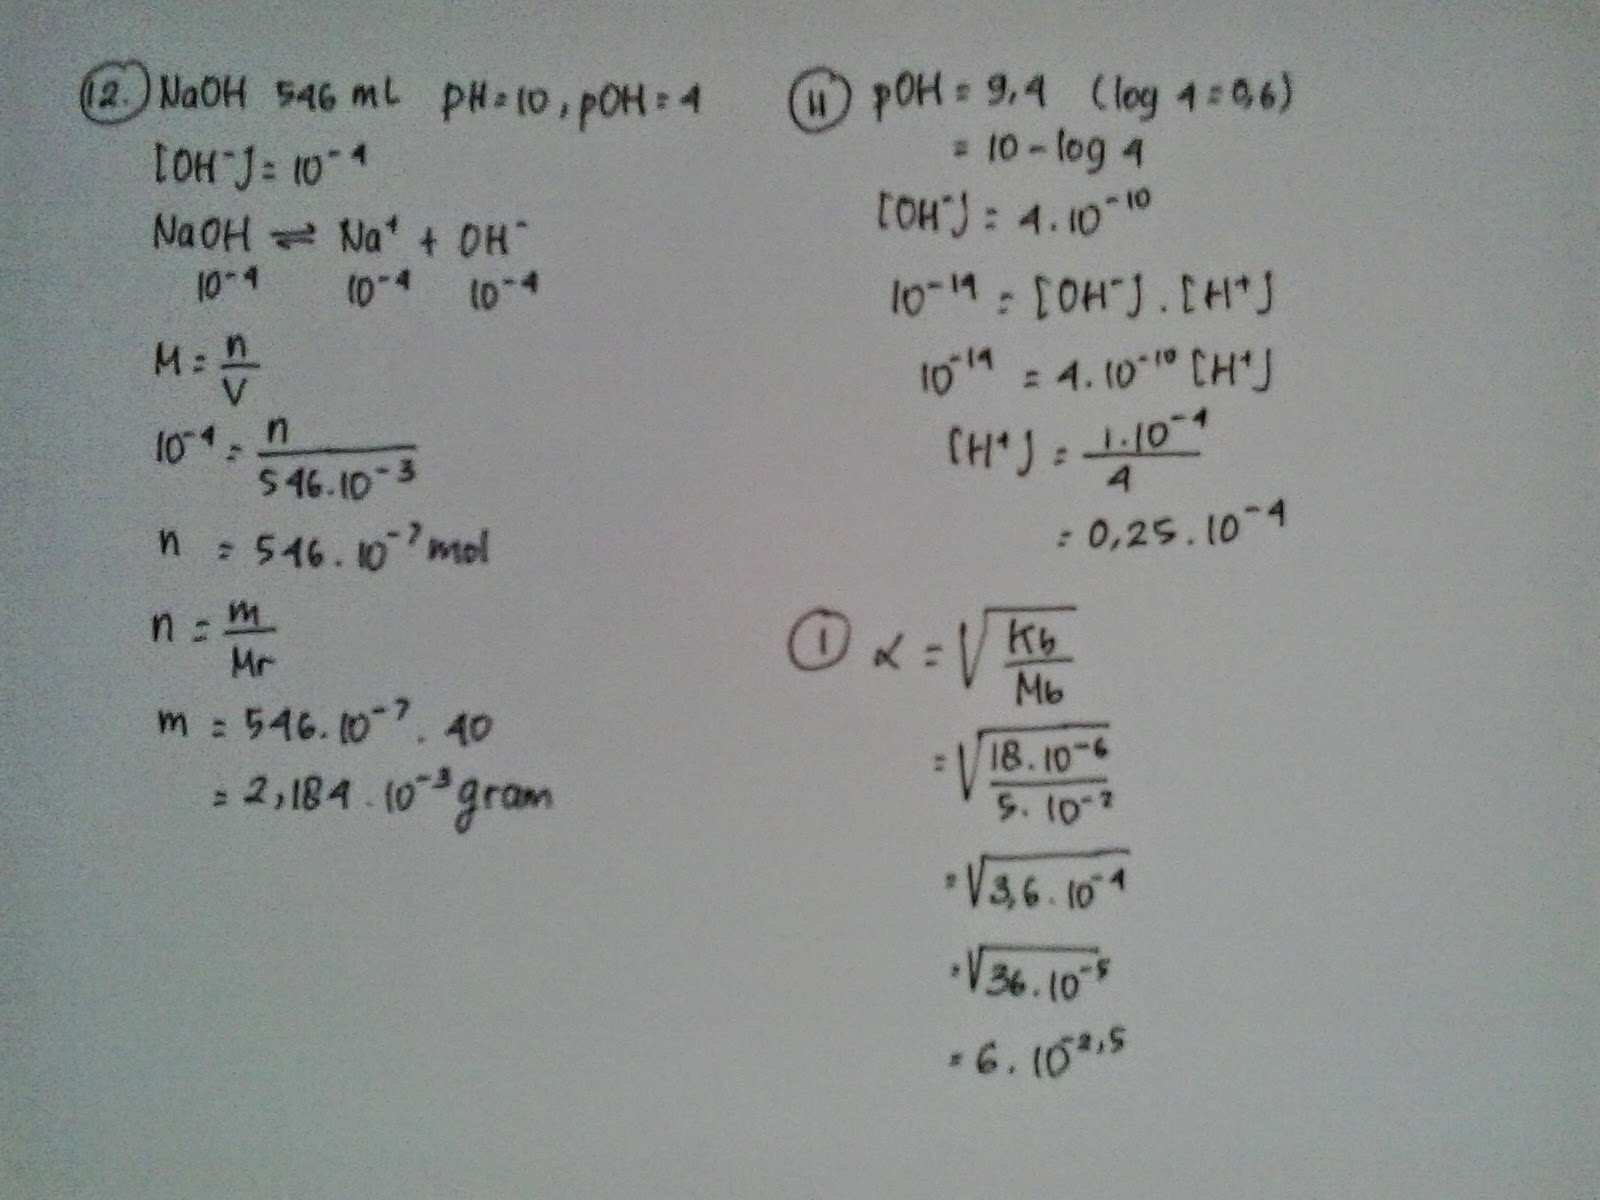 12. NaOH 546 mL pH = 10, pOH = 4
[OH⁻] = 10⁻⁴
NaOH ⇌ Na⁺ + OH⁻
10⁻⁴ 10⁻⁴ 10⁻⁴
M = n/V
10⁻⁴ = n/546.10⁻³
n = 546.10⁻⁷ mol
n = m/Mr
m = 546.10⁻⁷ . 40
= 2,184 . 10⁻³ gram
11 pOH = 9,4 (log 4 = 0,6)
= 10 - log 4
[OH⁻] = 4.10⁻¹⁰
10⁻¹⁴ = [OH⁻] . [H⁺]
10⁻¹⁴ = 4.10⁻¹⁰ [H⁺]
[H⁺] = 1.10⁻⁴/4
= 0,25.10⁻⁴
1 α = √(Kb/Mb)
= √(18.10⁻⁶/5.10⁻²)
= √(3,6.10⁻⁴)
= √(36.10⁻⁵)
= 6.10⁻²,⁵